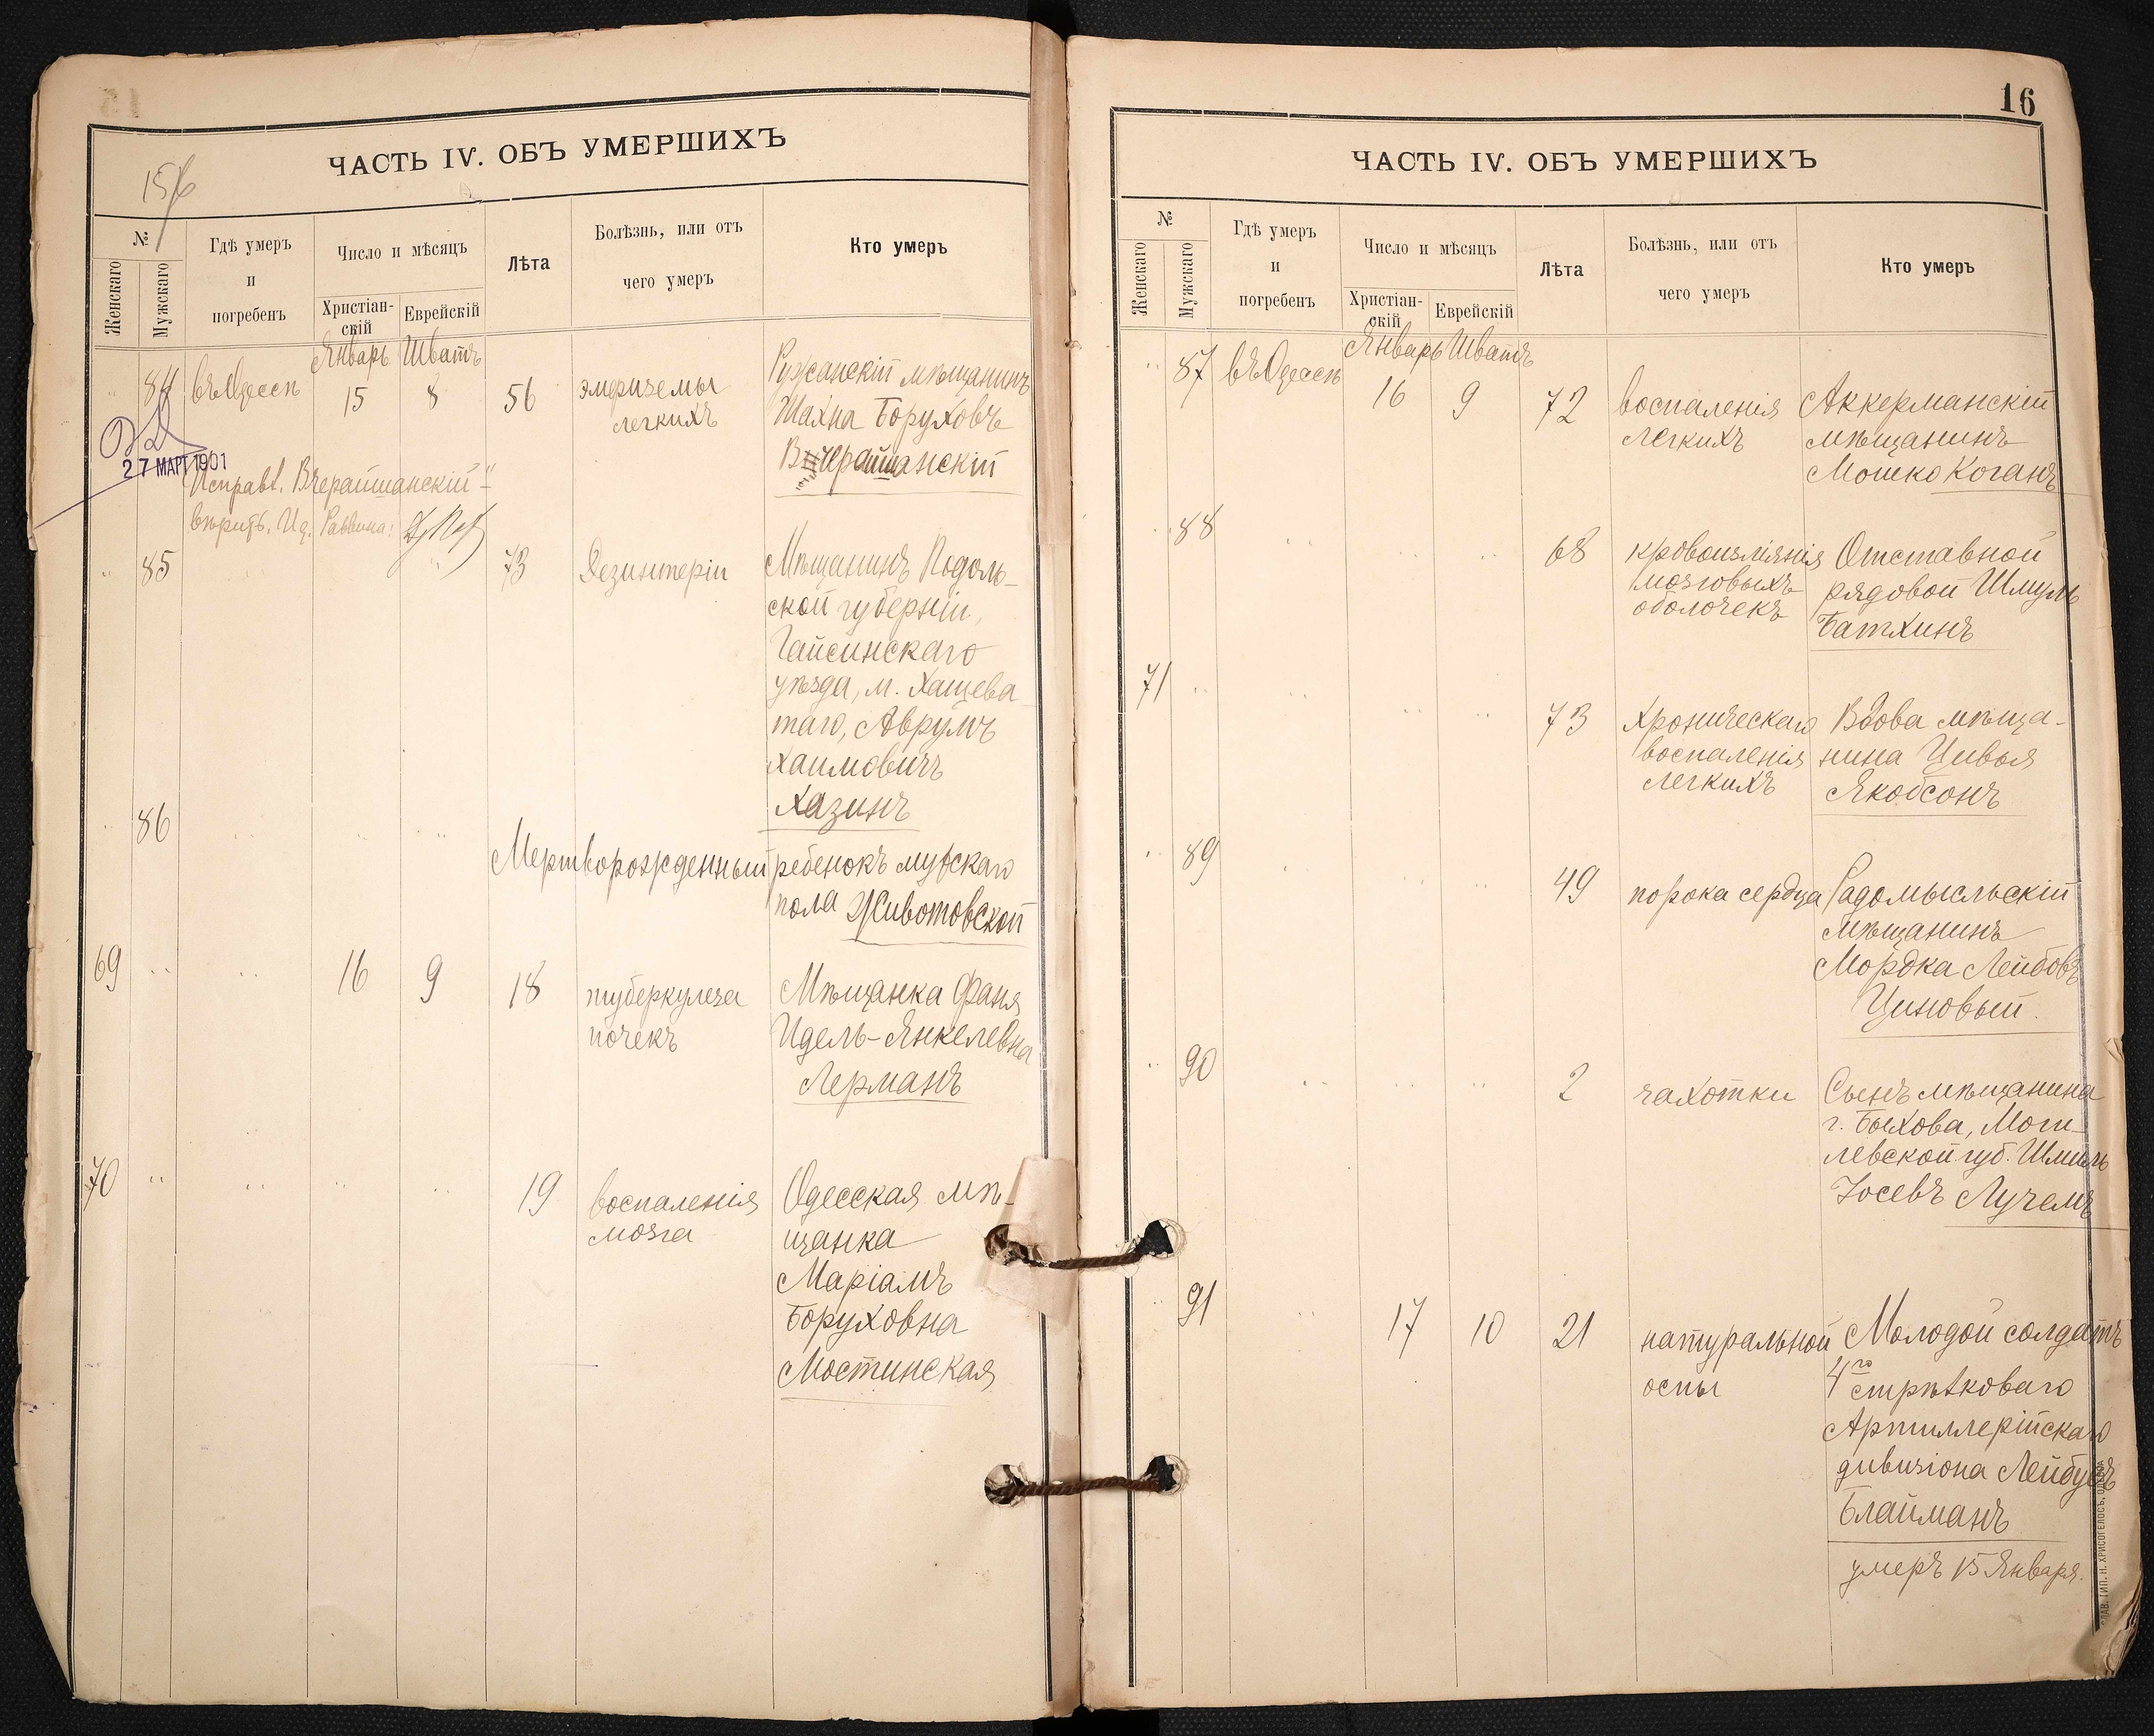 ЧАСТЬ IV. ОБЪ УМЕРШИХЪ
156
№
Женскаго
Мужскаго
Гдѣ умеръ
и
погребенъ
Число и мѣсяцъ
Христіан-
скій
Еврейскій
Лѣта
Болѣзнь, или отъ
чего умеръ
Кто умеръ
Январь Шватъ
84 въ Одессѣ 15 8 56 эмфиземы Ружанскій мѣщанинъ
легкихъ Шахна Боруховъ
Вчерайшанскій
27 МАР 1901
Исправл. Вчерайшанскій
вѣрить. Раввина:
85 73 Дезинтеріи Мѣщанинъ Подоль-
ской губерніи,
Гайсинскаго
уѣзда, м. Хащева
таго, Аврумъ
Хаимовичъ
Хазинъ
86
Мертворожденный ребенокъ мужскаго
пола Животовской
69 16 9 18 туберкулеза Мѣщанка Фаня
почекъ Идель-Янкелевна
Лерманъ
70 19 воспаленія Одесская мѣ-
мозга щанка
Маріамъ
Боруховна
Мостинская
16
ЧАСТЬ IV. ОБЪ УМЕРШИХЪ
№
Женскаго
Мужскаго
Гдѣ умеръ
и
погребенъ
Число и мѣсяцъ
Христіан-
скій
Еврейскій
Лѣта
Болѣзнь, или отъ
чего умеръ
Кто умеръ
Январь Шватъ
87 въ Одессѣ 16 9 72 воспаленія Аккерманскій
легкихъ мѣщанинъ
Мошко Коганъ
88 68 кровоизліянія Отставной
мозговыхъ рядовой Шмуль
оболочекъ Батхинъ
71 73 хроническаго Вдова мѣща-
воспаленія нина Цивья
легкихъ Якобсонъ
89 49 порока сердца Радомысльскій
мѣщанинъ
Мордка Лейбовъ
Циновый.
90 2 чахотки Сынъ мѣщанина
г. Быхова, Моги-
левской губ. Шмиль
Іосевъ Лучемъ
91 17 10 21 натуральной Молодой солдатъ
оспы 4го стрѣлковаго
Артиллерійскаго
дивизіона Лейбусъ
Блайманъ
умеръ 15 Января.
СЛАВ. ТИП. Н. ХРИСОГЕЛОСЪ, ОДЕССА